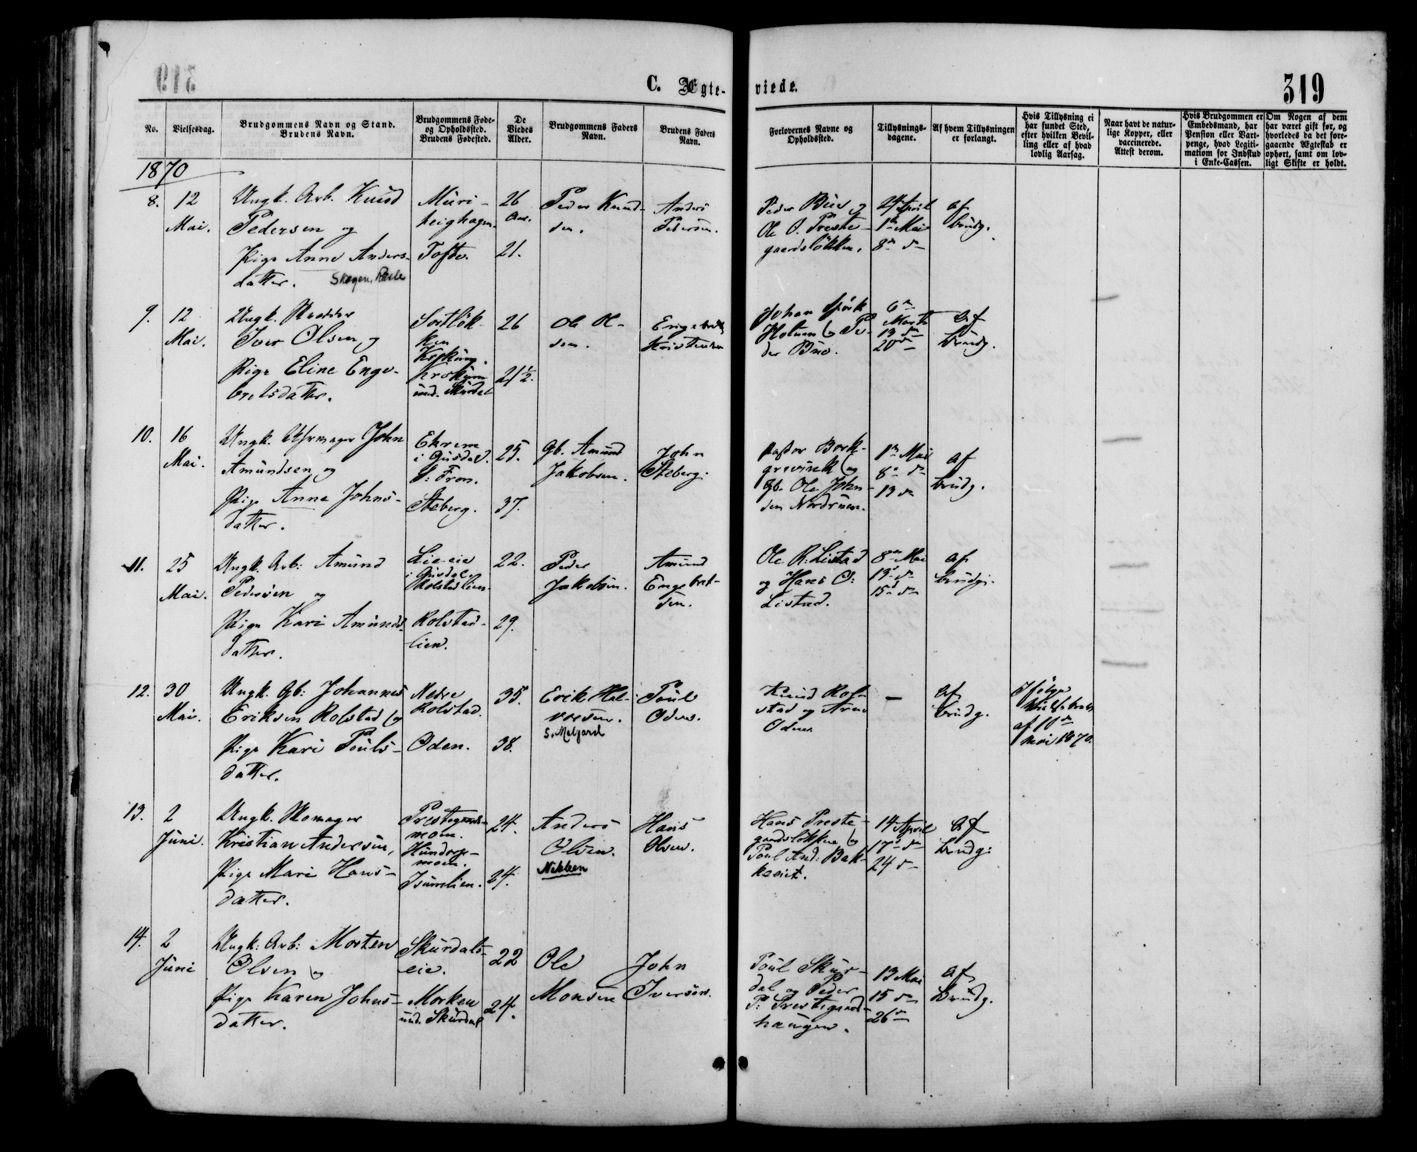 C. Ægte-viede.
319
No.
Vielsesdag.
Brudgommens Navn og Stand.
Brudens Navn.
Brudgommens Føde-
og Opholdssted.
Brudens Fødested.
De
Viedes
Alder.
Brudgommens Faders
Navn.
Brudens Faders
Navn.
Forlovernes Navne og
Opholdssted.
Tillysnings-
dagene.
Af hvem Tillysningen
er forlangt.
Hvis Tillysning ei
har fundet Sted,
efter hvilken Bevil-
ling eller af hvad
lovlig Aarsag.
Naar havt de natur-
lige Kopper, eller
vaccinerede.
Attest derom.
Hvis Brudgommen er
Embedsmand, har
Pension eller Vart-
penge, hvad Legiti-
mation for Indskud
i Enke-Cassen.
Om Nogen af dem
har været gift før, og
hvorledes da det fore-
gaaende Ægteskab er
ophørt, samt om lov-
ligt Skifte er holdt.
1870
8.
12
Mai.
Ungk. Arb. Knud
Pedersen og
Pige Anne Anders-
datter.
Tofte.
26
Aar.
21.
Peder Knud-
sen.
Anders
Pedersen.
Peder Bue og
Ole O. Preste-
gaardsløkken.
27 April
1ste Mai
8de Do
af
brudg.
9.
12
Mai.
Iver Olsen og
Pige Eline Enge-
bretsdatter.
26
21½.
Ole Ol-
sen.
Engebret
Kristensen
Holmen og Pe-
der Bue.
af
brudg.
10.
16
Mai.
John
Amundsen og
Pige Anne Johns-
datter.
i Gusdal.
S. Fron.
Steberg.
25.
37.
Gb. Amund
Jakobsen.
John
Steberg.
Pastor Borch-
grevink og
Gb. Ole John-
sen Nordrum.
1ste Mai
8de Do
13 Do
af
brudg.
11.
25
Mai.
Ungk. Arb. Amund
Pedersen og
Pige Kari Amunds-
datter.
Lie-eie
i Gusdal
Kolstadlien.
Kolstad-
lien.
22.
29.
Peder
Jakobsen.
Amund
Engebret-
sen.
Ole K. Listad
og Hans O.
Listad.
8de Mai
13 Do
15 Do
af
brudg.
12.
30
Mai.
Ungk. Gb. Johannes
Eriksen Kolstad og
Pige Kari Pouls-
datter.
Nedre
Kolstad.
Oden.
35.
38.
Erik Hal-
vorsen.
Poul
Oden.
Knud Kol-
stad og Arne
Oden
—
af
brudg.
af 10de
Mai 1870.
13.
2
Juni.
Ungk. Skomager
Kristian Andersen,
Pige Mari Hans-
datter.
Prestegaards-
moen.
24.
24.
Anders
Olsen.
Hans
Olsen.
Hans Preste-
gardsløkken og
Poul And. Bak-
14 April
17de Do
24 Do
af
brudg.
14.
2
Juni
Ungk. Arb. Morten
Olsen og
Pige Karen Johns-
datter.
Skurdals-
eie.
Morken
und. Skurdal
22
24.
Ole
Monsen
John
Iversen.
Poul Skur-
dal og Peder
P. Prestegaard-
haugen.
13 Mai
15 Do
26 Do
af
brudg.